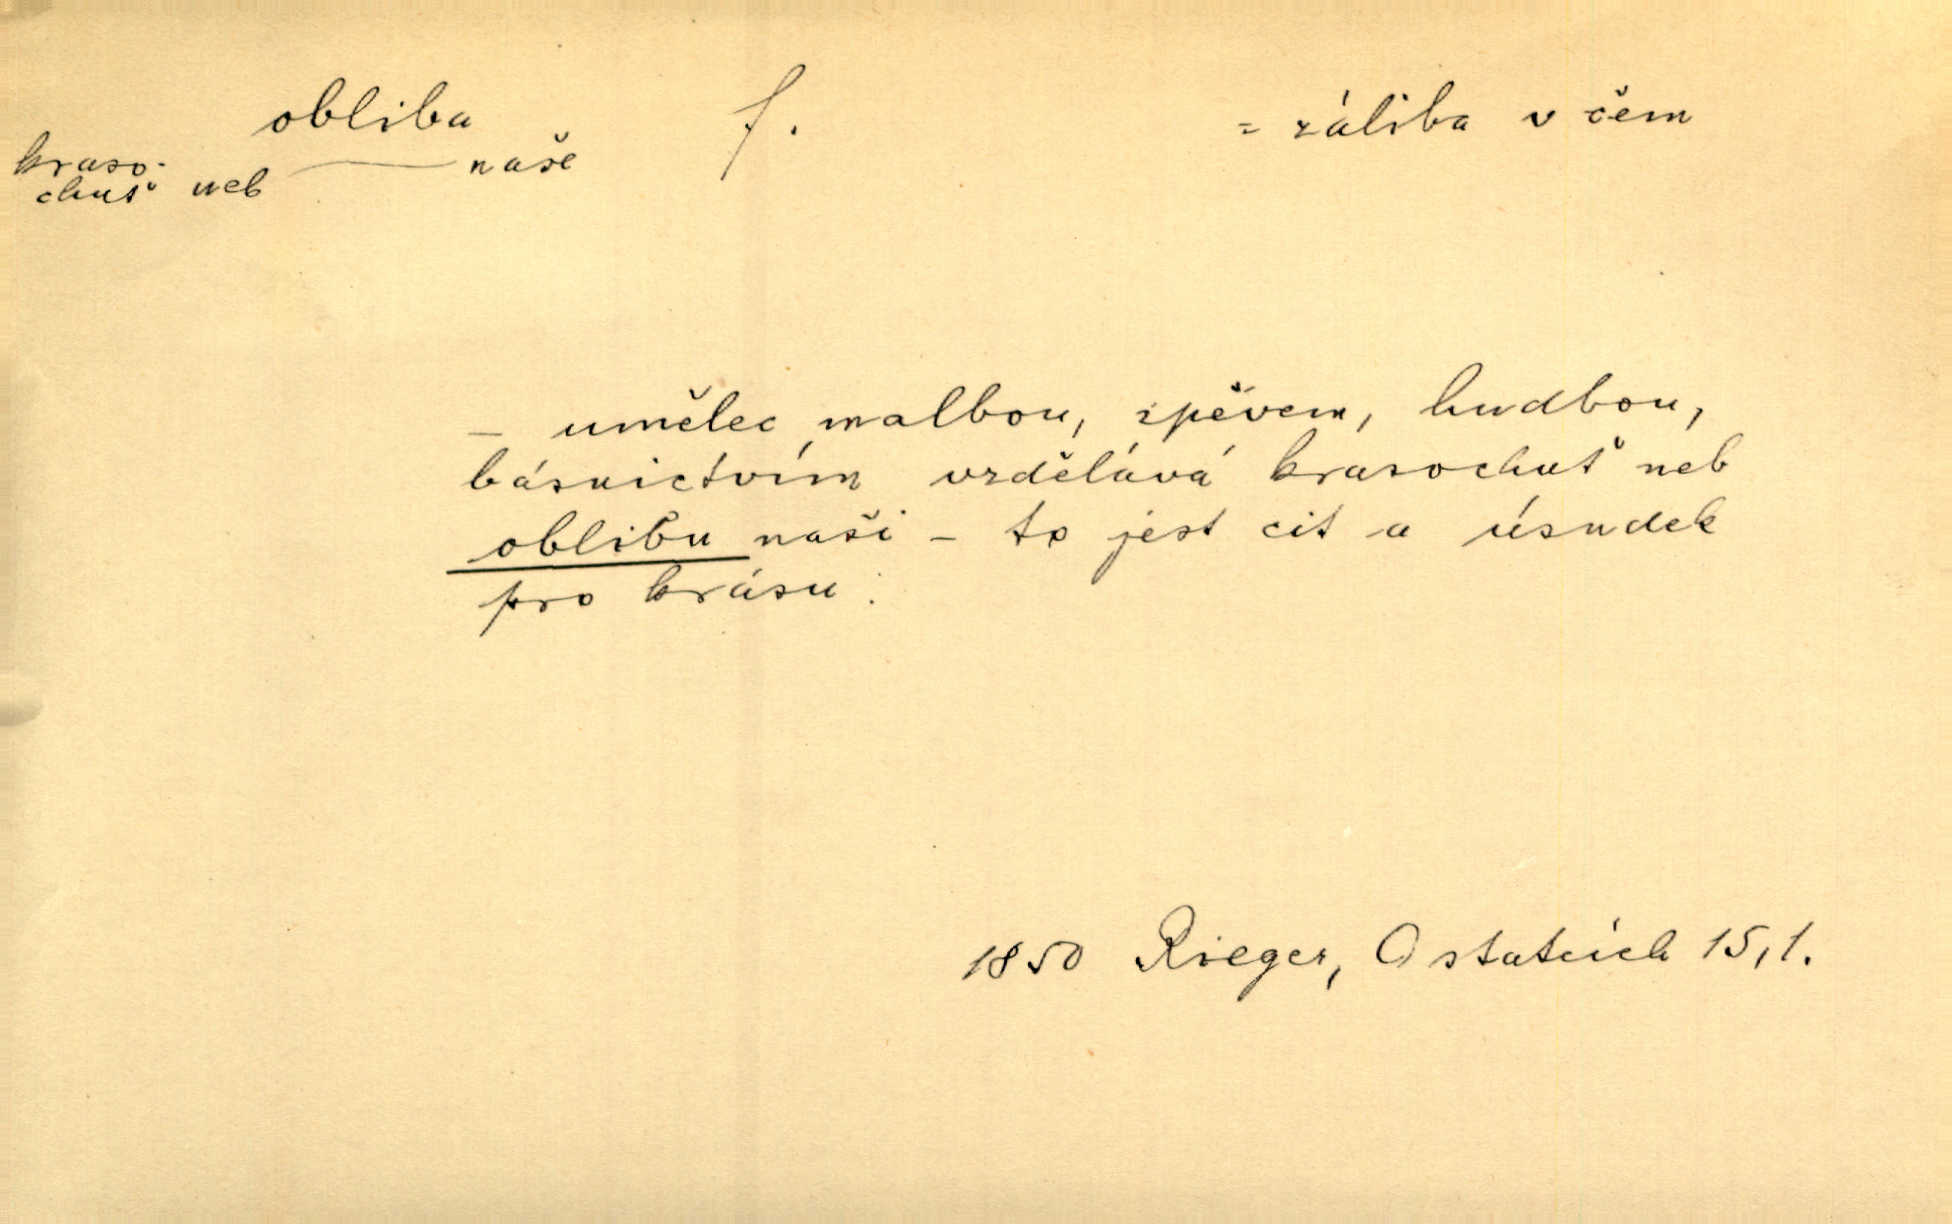 obliba f. = záliba v čem
kraso-
chuť neb — naše
– umělec malbou, zpěvem, hudbou,
básnictvím vzdělává krasochuť neb
oblibu naši – to jest cit a úsudek
pro krásu.
1850 Rieger, O statcích 15,1.